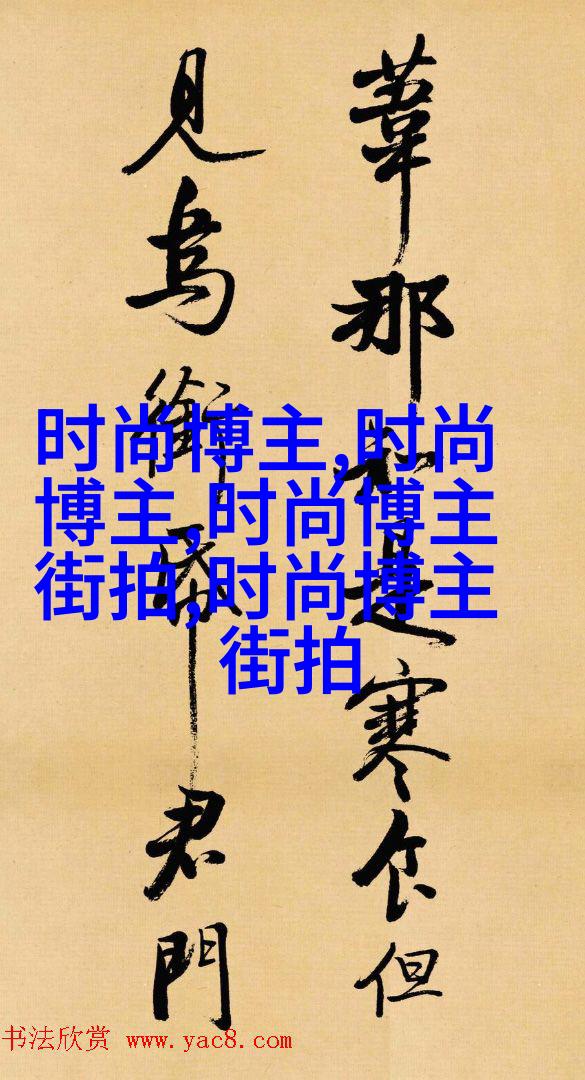 葦那知是寒食但
見烏銜帋君門
时尚博主,时尚
博主,时尚博主
街拍,时尚博主
街拍
书法欣赏 www.yac8.com